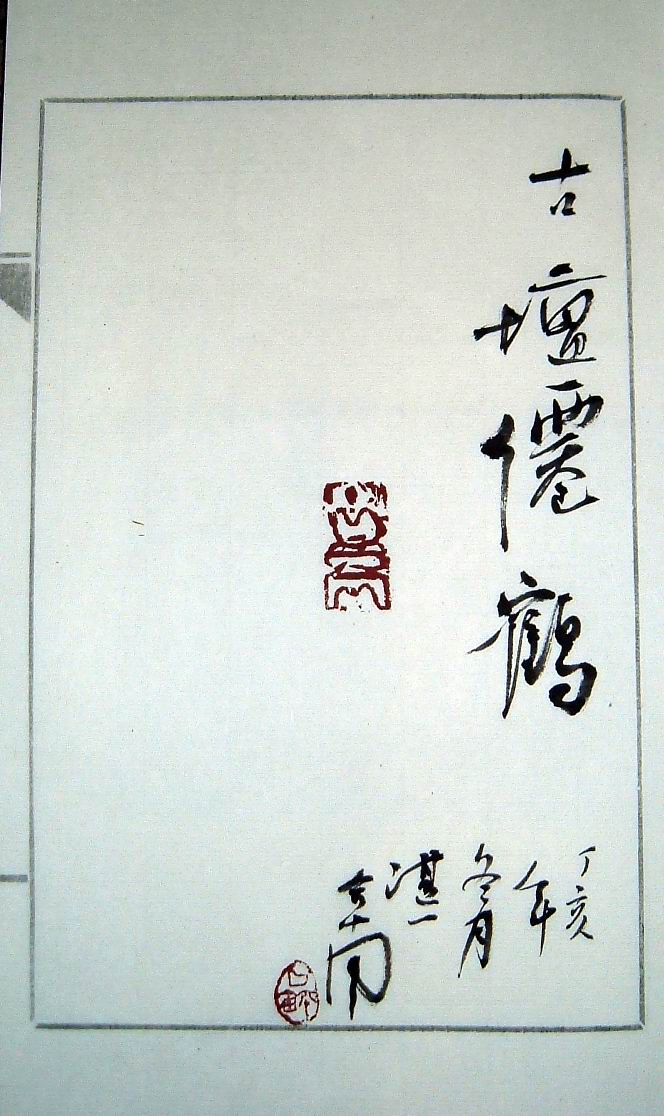 古壇僊鶴
丁亥
年
冬月
湛一